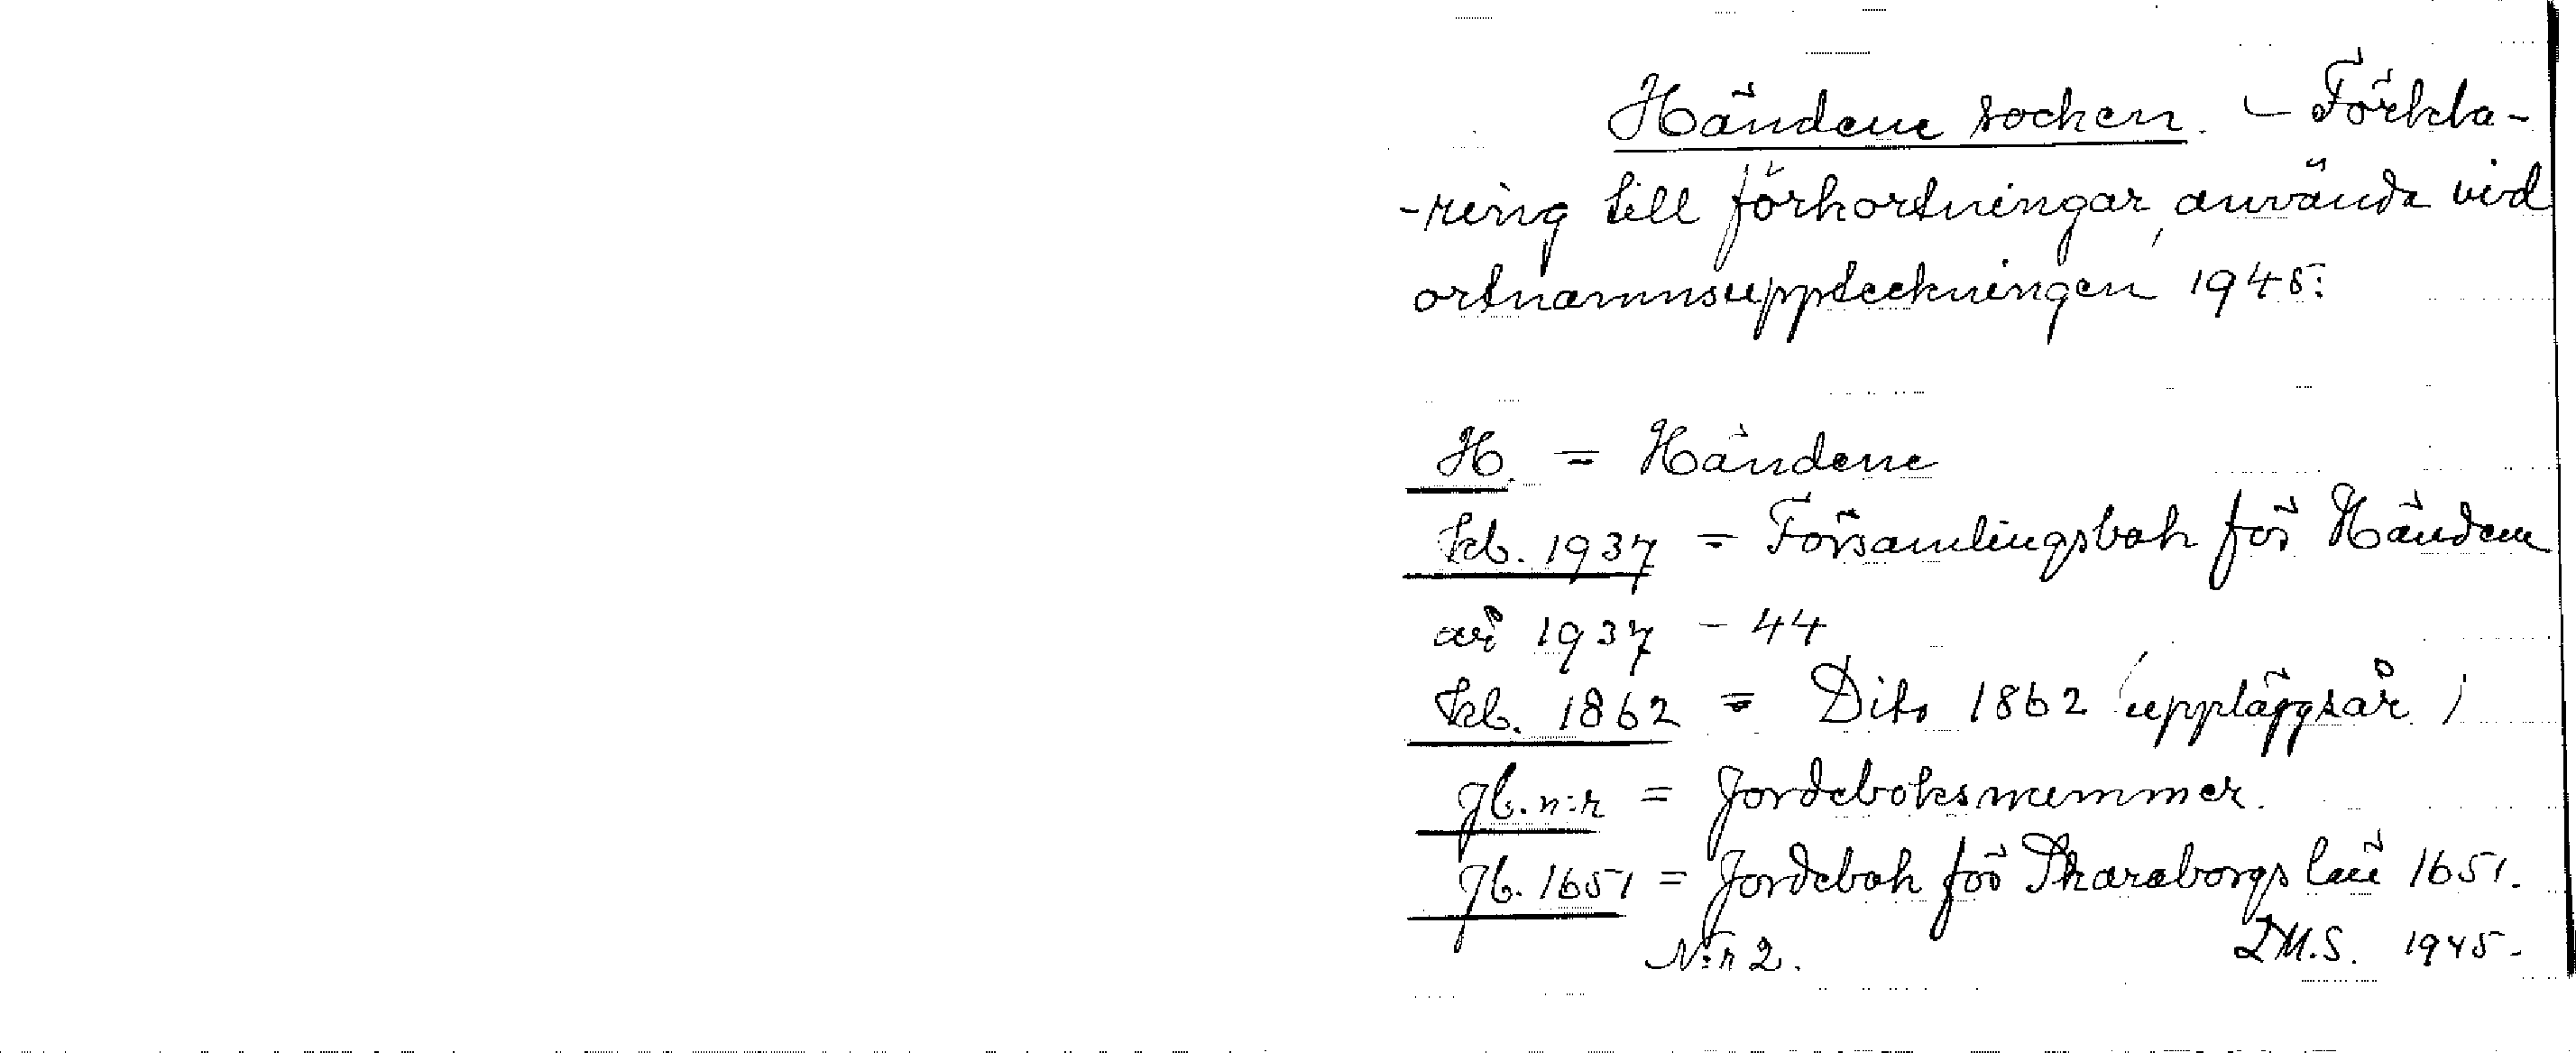 Händene socken. – Förkla-
-ring till förkortningar, använda vid
ortnamnsuppteckningen 1945:
H. = Händene
kb. 1937 = Församlingsbok för Händene
år 1937 – 44
kb. 1862 = Dito 1862 (uppläggsår)
Jb. n:r = Jordeboksnummer.
Jb. 1651 = Jordebok för Skaraborgs län 1651.
N:r 2. I.M.S. 1945.